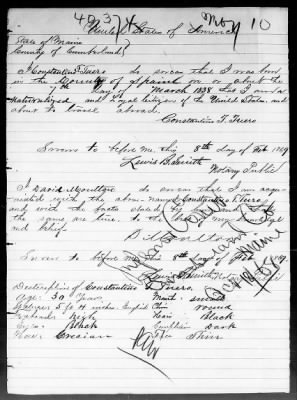 United States of America
State of Maine
County of Cumberland
I Constantine T. Tuero do swear that I was born
in the Country of Spain on or about the
7th day of March 1838 that I am a
naturalized and Loyal Citizen of the United States, and
about to travel abroad.
Constantine T. Tuero
Sworn to before me this 8th day of Feb 1869
Lewis B. Smith
Notary Public
I David Moulton do swear that I am acqu-
ainted with the above named Constantine T. Tuero
and with the facts stated by him and that
the same are true to the best of my knowledge
and belief.
Sworn to before me this 8th day of Feb
Lewis B. Smith
Description of Constantine T. Tuero
Age: 30 Years Mouth: small
Stature: 5 ft 4 inches English Chin: round
Forehead: high Hair: Black
Eyes: Black Complexion Dark
Nose: Grecian Face Thin